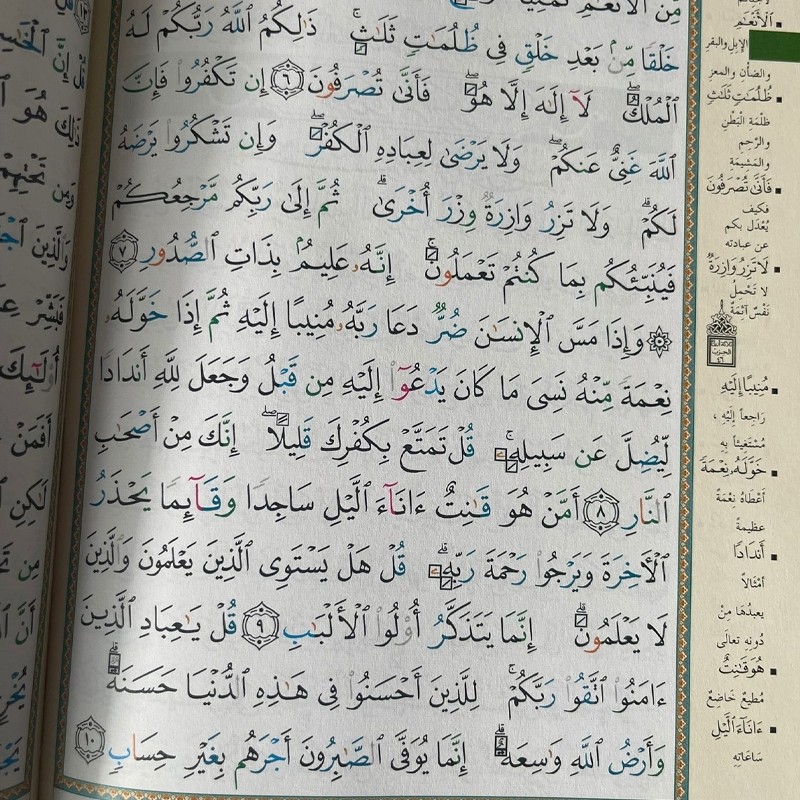 مِنَ ٱلۡأَنۡعَٰمِ
خَلۡقٗا مِّنۢ بَعۡدِ خَلۡقٖ فِي ظُلُمَٰتٖ ثَلَٰثٖۚ ذَٰلِكُمُ ٱللَّهُ رَبُّكُمۡ لَهُ
ٱلۡمُلۡكُۖ لَآ إِلَٰهَ إِلَّا هُوَۖ فَأَنَّىٰ تُصۡرَفُونَ ٦ إِن تَكۡفُرُواْ فَإِنَّ
ٱللَّهَ غَنِيٌّ عَنكُمۡۖ وَلَا يَرۡضَىٰ لِعِبَادِهِ ٱلۡكُفۡرَۖ وَإِن تَشۡكُرُواْ يَرۡضَهُ
لَكُمۡۗ وَلَا تَزِرُ وَازِرَةٞ وِزۡرَ أُخۡرَىٰۗ ثُمَّ إِلَىٰ رَبِّكُم مَّرۡجِعُكُمۡ
فَيُنَبِّئُكُم بِمَا كُنتُمۡ تَعۡمَلُونَۚ إِنَّهُۥ عَلِيمُۢ بِذَاتِ ٱلصُّدُورِ ٧
۞ وَإِذَا مَسَّ ٱلۡإِنسَٰنَ ضُرّٞ دَعَا رَبَّهُۥ مُنِيبًا إِلَيۡهِ ثُمَّ إِذَا خَوَّلَهُۥ
نِعۡمَةٗ مِّنۡهُ نَسِيَ مَا كَانَ يَدۡعُوٓاْ إِلَيۡهِ مِن قَبۡلُ وَجَعَلَ لِلَّهِ أَندَادٗا
لِّيُضِلَّ عَن سَبِيلِهِۦۚ قُلۡ تَمَتَّعۡ بِكُفۡرِكَ قَلِيلًاۖ إِنَّكَ مِنۡ أَصۡحَٰبِ
ٱلنَّارِ ٨ أَمَّنۡ هُوَ قَٰنِتٌ ءَانَآءَ ٱلَّيۡلِ سَاجِدٗا وَقَآئِمٗا يَحۡذَرُ
ٱلۡأٓخِرَةَ وَيَرۡجُواْ رَحۡمَةَ رَبِّهِۦۗ قُلۡ هَلۡ يَسۡتَوِي ٱلَّذِينَ يَعۡلَمُونَ وَٱلَّذِينَ
لَا يَعۡلَمُونَۗ إِنَّمَا يَتَذَكَّرُ أُوْلُواْ ٱلۡأَلۡبَٰبِ ٩ قُلۡ يَٰعِبَادِ ٱلَّذِينَ
ءَامَنُواْ ٱتَّقُواْ رَبَّكُمۡۚ لِلَّذِينَ أَحۡسَنُواْ فِي هَٰذِهِ ٱلدُّنۡيَا حَسَنَةٞۗ
وَأَرۡضُ ٱللَّهِ وَٰسِعَةٌۗ إِنَّمَا يُوَفَّى ٱلصَّٰبِرُونَ أَجۡرَهُم بِغَيۡرِ حِسَابٖ ١٠
ٱلۡأَنۡعَٰمِ
الإبل والبقر
والضأن والمعز
ظُلُمَٰتٖ ثَلَٰثٖ
ظلمَةِ البَطْنِ
والرَّحِمِ
والمَشِيمَةِ
فَأَنَّىٰ تُصۡرَفُونَ
فكيف
يُعْدَل بكم
عن عبادته
لَا تَزِرُ وَازِرَةٞ
لا تَحْمِلُ
نَفْسٌ آثِمَةٌ
مُنِيبًا إِلَيۡهِ
رَاجِعاً إلَيْهِ ،
مُسْتَغِيثاً بِهِ
خَوَّلَهُۥ نِعۡمَةٗ
أعْطَاهُ نِعْمَةً
عظيمةً
أَندَادٗا
أمْثالاً
يعبدُهَا مِنْ
دُونِهِ تعالى
هُوَ قَٰنِتٌ
مُطيعٌ خَاضِعٌ
ءَانَآءَ ٱلَّيۡلِ
سَاعَاتِهِ